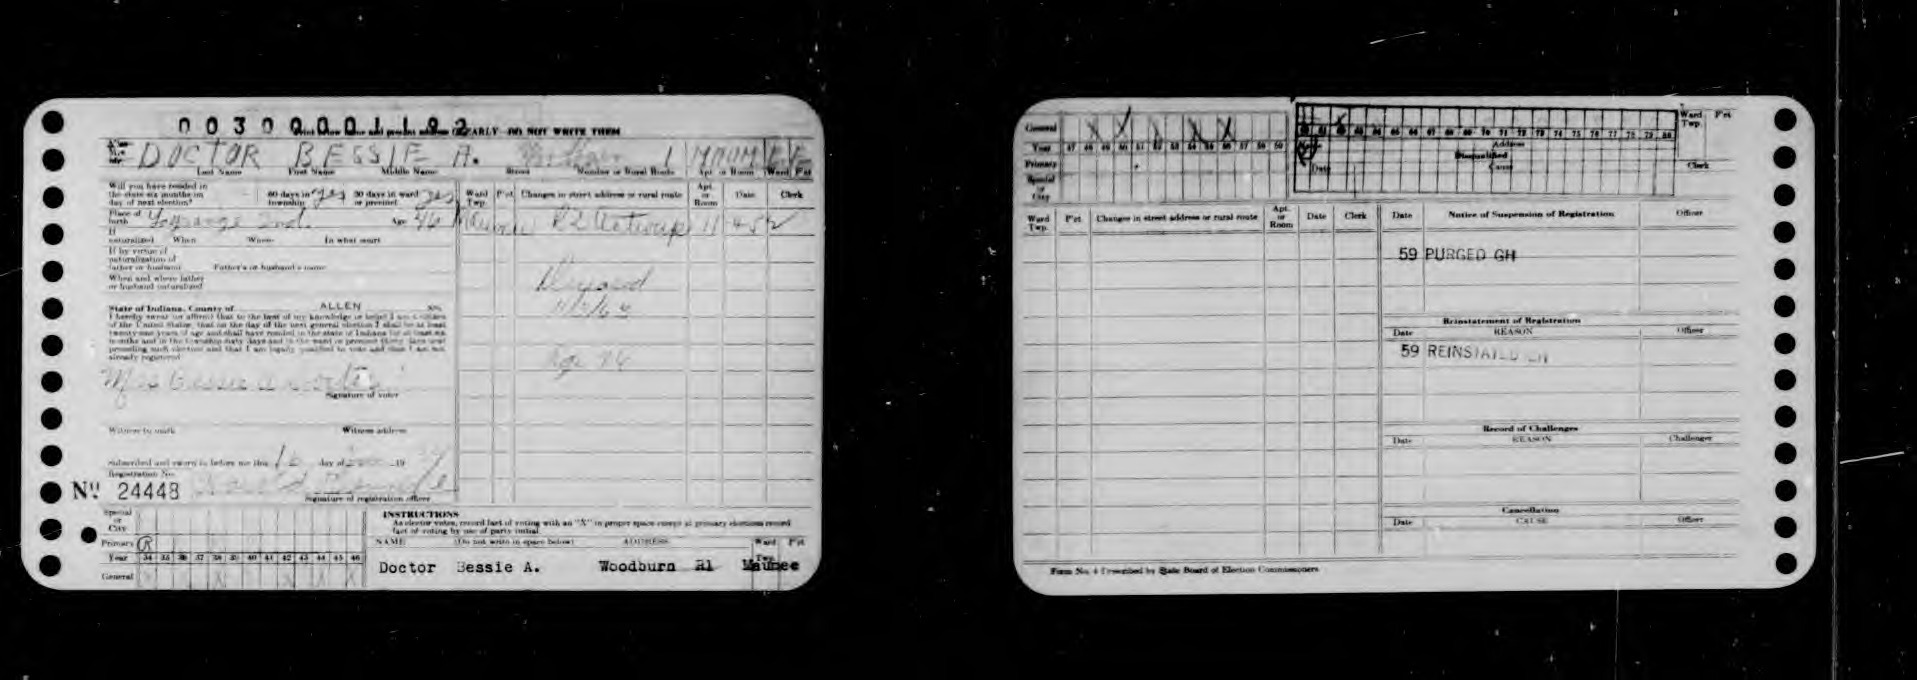 0030 0001192
CLEARLY DO NOT WRITE THEM
DOCTOR BESSIE A. 1 MAUM
Last Name First Name Middle Name Street Number or Rural Route Apt. or Room Ward P'ct
Will you have resided in
the state six months on
day of next election?
60 days in township yes 30 days in ward or precinct yes
Place of birth Lagrange Ind. Age 46
If naturalized When Where In what court
If by virtue of
naturalization of
father or husband Father's or husband's name
When and where father
or husband naturalized
State of Indiana, County of ALLEN SS:
I hereby swear (or affirm) that to the best of my knowledge or belief I am a citizen
of the United States, that on the day of the next general election I shall be at least
twenty-one years of age and shall have resided in the state of Indiana for at least six
months and in the township sixty days and in the ward or precinct thirty days next
preceding such election and that I am legally qualified to vote and that I am not
already registered
Mrs Bessie A Doctor
Signature of voter
Witness to mark Witness address
Subscribed and sworn to before me this 16 day of 19
Registration No.
No. 24448
Signature of registration officer
Ward Twp. P'ct Changes in street address or rural route Apt. or Room Date Clerk
Maumee R2 Antwerp 11-4-52
Deceased
Age 76
Special or City
Primary R
Year 34 35 36 37 38 39 40 41 42 43 44 45 46
General X X X
INSTRUCTIONS
As elector votes, record fact of voting with an "X" in proper space except at primary elections record
fact of voting by use of party initial.
NAME (Do not write in space below) ADDRESS Ward Twp. P'ct
Doctor Bessie A. Woodburn R1 Maumee
General X X X X X
Year 47 48 49 50 51 52 53 54 55 56 57 58 59
Primary
Special or City
60 61 62 63 64 65 66 67 68 69 70 71 72 73 74 75 76 77 78 79 80
Address
Disqualified
Date Cause
Ward Twp. P'ct
Clerk
Ward Twp. P'ct Changes in street address or rural route Apt. or Room Date Clerk
Date Notice of Suspension of Registration Officer
59 PURGED GH
Reinstatement of Registration
Date REASON Officer
59 REINSTATED
Record of Challenges
Date REASON Challenger
Cancellation
Date CAUSE Officer
Form No. 4 Prescribed by State Board of Election Commissioners